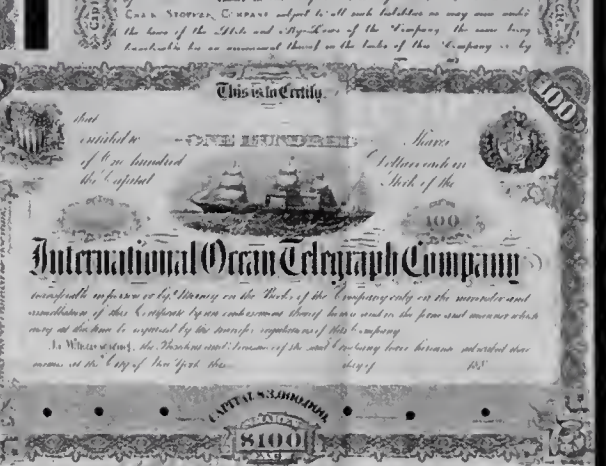 Chain Stopper Company subject to all such liabilities as may arise under
the laws of the State and By-Laws of the Company, the same being
transferable by an of the Company is by
This is to Certify,
that
entitled to ONE HUNDRED Shares
of One hundred Dollars each in
the Capital Stock of the
100
100
International Ocean Telegraph Company
transferable in person or by Attorney on the Books of the Company only on the surrender and
cancellation of this Certificate by an endorsement thereof hereon and in the form and manner which
may at the time be required by the transfer regulations of this Company
In Witness whereof, the President and Treasurer of the said Company have hereunto subscribed their
names at the City of New York this day of 188
CAPITAL $3,000,000.
SHARES
$100
EACH